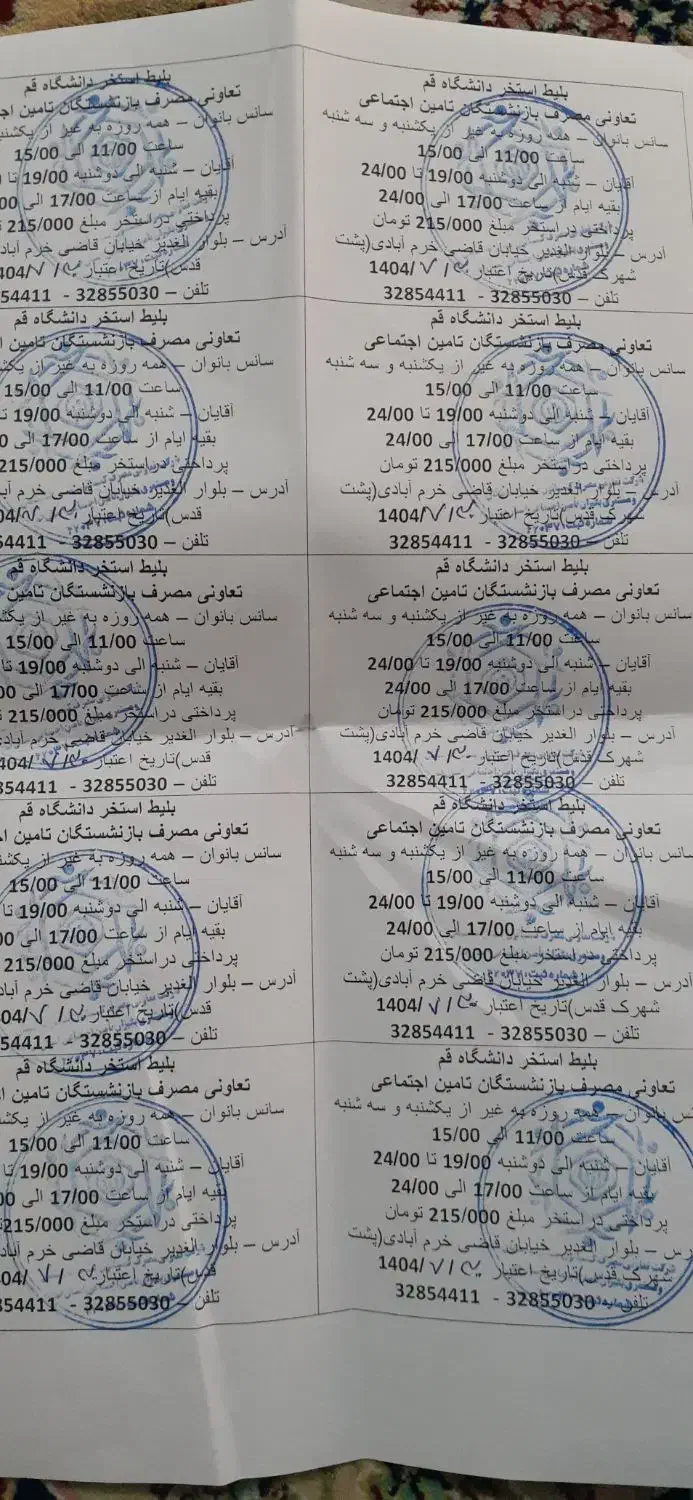 بلیط استخر دانشگاه قم
تعاونی مصرف بازنشستگان تامین اجتماعی
سانس بانوان – همه روزه به غیر از یکشنبه و سه شنبه
ساعت 11/00 الی 15/00
آقایان – شنبه الی دوشنبه 19/00 تا 24/00
بقیه ایام از ساعت 17/00 الی 24/00
پرداختی در استخر مبلغ 215/000 تومان
آدرس – بلوار الغدیر خیابان قاضی خرم آبادی(پشت
شهرک قدس)تاریخ اعتبار 1404/7/
تلفن – 32855030 - 32854411
بلیط استخر دانشگاه قم
تعاونی مصرف بازنشستگان تامین
سانس بانوان – همه روزه به غیر از
ساعت 11/00 الی 15/00
آقایان – شنبه الی دوشنبه 19/00 تا
بقیه ایام از ساعت 17/00 الی
پرداختی در استخر مبلغ 215/000
آدرس – بلوار الغدیر خیابان قاضی خرم
قدس)تاریخ اعتبار /7/
تلفن – 32855030 -
بلیط استخر دانشگاه قم
تعاونی مصرف بازنشستگان تامین اجتماعی
سانس بانوان – همه روزه به غیر از یکشنبه و سه شنبه
ساعت 11/00 الی 15/00
آقایان – شنبه الی دوشنبه 19/00 تا 24/00
بقیه ایام از ساعت 17/00 الی 24/00
پرداختی در استخر مبلغ 215/000 تومان
آدرس – بلوار الغدیر خیابان قاضی خرم آبادی(پشت
شهرک قدس)تاریخ اعتبار 1404/7/
تلفن – 32855030 - 32854411
بلیط استخر دانشگاه قم
تعاونی مصرف بازنشستگان تامین
سانس بانوان – همه روزه به غیر از
ساعت 11/00 الی 15/00
آقایان – شنبه الی دوشنبه 19/00 تا
بقیه ایام از ساعت 17/00 الی
پرداختی در استخر مبلغ 215/000
آدرس – بلوار الغدیر خیابان قاضی خرم
قدس)تاریخ اعتبار /7/
تلفن – 32855030 -
بلیط استخر دانشگاه قم
تعاونی مصرف بازنشستگان تامین اجتماعی
سانس بانوان – همه روزه به غیر از یکشنبه و سه شنبه
ساعت 11/00 الی 15/00
آقایان – شنبه الی دوشنبه 19/00 تا 24/00
بقیه ایام از ساعت 17/00 الی 24/00
پرداختی در استخر مبلغ 215/000 تومان
آدرس – بلوار الغدیر خیابان قاضی خرم آبادی(پشت
شهرک قدس)تاریخ اعتبار 1404/7/
تلفن – 32855030 - 32854411
بلیط استخر دانشگاه قم
تعاونی مصرف بازنشستگان تامین
سانس بانوان – همه روزه به غیر از
ساعت 11/00 الی 15/00
آقایان – شنبه الی دوشنبه 19/00 تا
بقیه ایام از ساعت 17/00 الی
پرداختی در استخر مبلغ 215/000
آدرس – بلوار الغدیر خیابان قاضی خرم
قدس)تاریخ اعتبار /7/
تلفن – 32855030 -
بلیط استخر دانشگاه قم
تعاونی مصرف بازنشستگان تامین اجتماعی
سانس بانوان – همه روزه به غیر از یکشنبه و سه شنبه
ساعت 11/00 الی 15/00
آقایان – شنبه الی دوشنبه 19/00 تا 24/00
بقیه ایام از ساعت 17/00 الی 24/00
پرداختی در استخر مبلغ 215/000 تومان
آدرس – بلوار الغدیر خیابان قاضی خرم آبادی(پشت
شهرک قدس)تاریخ اعتبار 1404/7/
تلفن – 32855030 - 32854411
بلیط استخر دانشگاه قم
تعاونی مصرف بازنشستگان تامین
سانس بانوان – همه روزه به غیر از
ساعت 11/00 الی 15/00
آقایان – شنبه الی دوشنبه 19/00 تا
بقیه ایام از ساعت 17/00 الی
پرداختی در استخر مبلغ 215/000
آدرس – بلوار الغدیر خیابان قاضی خرم
قدس)تاریخ اعتبار /7/
تلفن – 32855030 -
بلیط استخر دانشگاه قم
تعاونی مصرف بازنشستگان تامین اجتماعی
سانس بانوان – همه روزه به غیر از یکشنبه و سه شنبه
ساعت 11/00 الی 15/00
آقایان – شنبه الی دوشنبه 19/00 تا 24/00
بقیه ایام از ساعت 17/00 الی 24/00
پرداختی در استخر مبلغ 215/000 تومان
آدرس – بلوار الغدیر خیابان قاضی خرم آبادی(پشت
شهرک قدس)تاریخ اعتبار 1404/7/
تلفن – 32855030 - 32854411
بلیط استخر دانشگاه قم
تعاونی مصرف بازنشستگان تامین
سانس بانوان – همه روزه به غیر از
ساعت 11/00 الی 15/00
آقایان – شنبه الی دوشنبه 19/00 تا
بقیه ایام از ساعت 17/00 الی
پرداختی در استخر مبلغ 215/000
آدرس – بلوار الغدیر خیابان قاضی خرم
قدس)تاریخ اعتبار /7/
تلفن – 32855030 -